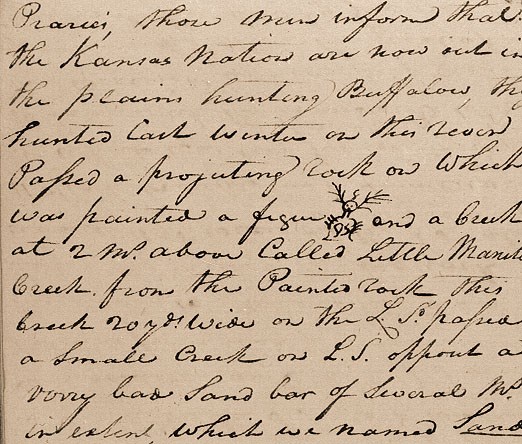 Praries, those men inform that
the Kansas Nation are now out in
the plains hunting Buffalow, they
hunted last winter on this river
Passed a projecting rock on which
was painted a figue and a Creek
at 2 Ms. above Called Little Manitou
Creek from the Painted rock this
Creek 20 yds. wide on the L. Sd. passed
a Small Creek on L. S. opposit a
verry bad Sand bar of Several Ms.
in extent, which we named Sand